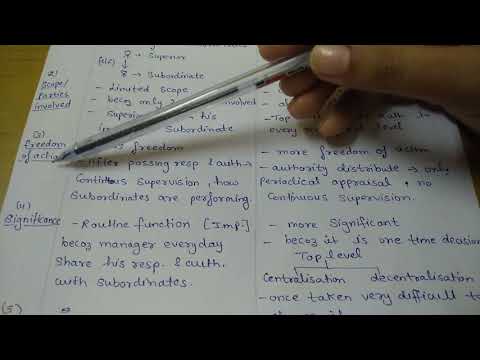 Superior
2)
Subordinate
Scope/
Parties
involved
- Limited Scope
- becoz only 2 involved
Superior his
Subordinate
- Top auth to
every level
(3)
freedom
of action
freedom
- After passing resp & auth →
Continous Supervision, how
Subordinates are performing.
- more freedom of action
- authority distribute → only
periodical appraisal, no
Continuous Supervision.
(4)
Significance
- Routine function [Imp.]
becoz manager everyday
Share his resp. & auth.
with subordinates.
- more Significant
- becoz it is one time decision
Top level
Centralisation decentralisation
- once taken very difficult to
(5)